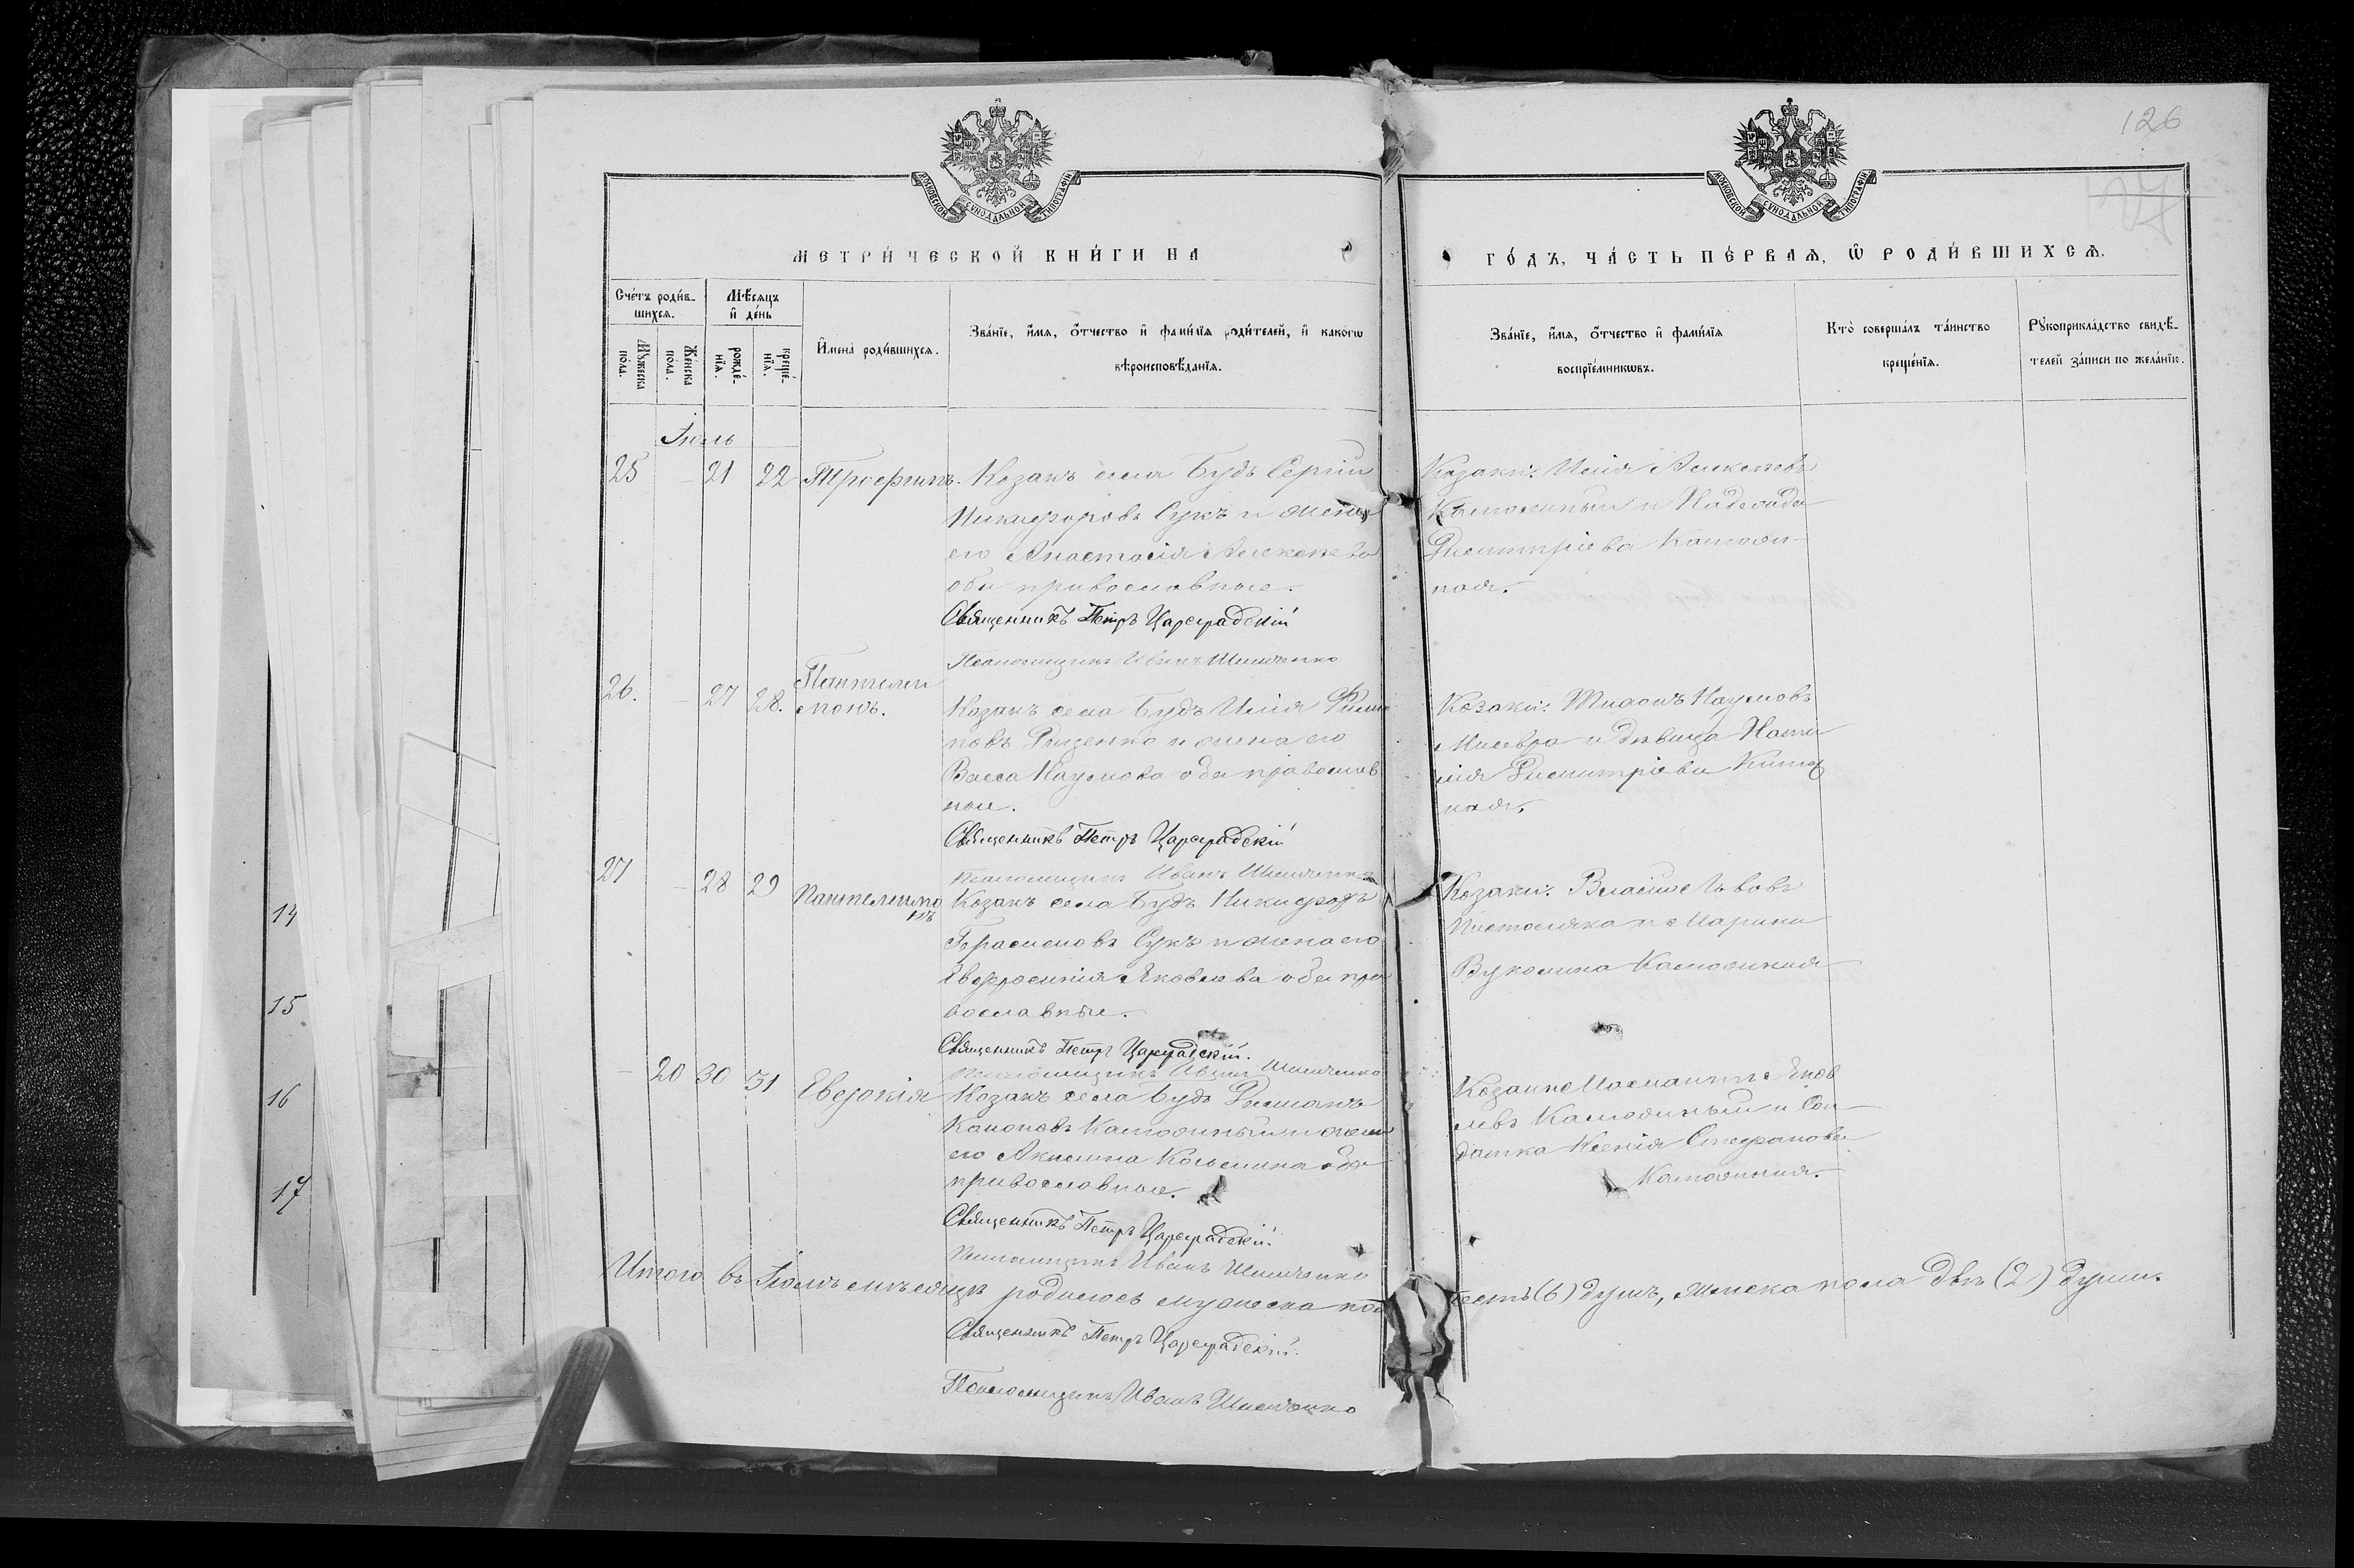 126
127
МОСКОВСКОЙ СѴНОДАЛЬНОЙ ТИПОГРАФІИ
МОСКОВСКОЙ СѴНОДАЛЬНОЙ ТИПОГРАФІИ
МЕТРИ́ЧЕСКОЙ КНИ́ГИ НА
ГО́ДЪ, ЧА́СТЬ ПЕ́РВАѦ, Ѿ РОДИ́ВШИХСѦ.
Сче́тъ роди́в-
шихсѧ.
Мѣ́сѧцъ
и҆ де́нь
Мꙋ́жеска
по́ла.
Же́нска
по́ла.
рожде́-
нїѧ.
креще́-
нїѧ.
И҆мена̀ роди́вшихсѧ.
Зва́нїе, и҆́мѧ, ѻ҆́тчество и҆ фами́лїѧ роди́телей, и҆ какогѡ
вѣроисповѣ́данїѧ.
Зва́нїе, и҆́мѧ, ѻ҆́тчество и҆ фами́лїѧ
воспрїе́мникѡвъ.
Кто̀ соверша́лъ та́инство
креще́нїѧ.
Рꙋкоприкла́дство свидѣ́-
телей за́писи по жела́нїю.
Іюль
25 – 21 22 Трофимъ. Козакъ села Будъ Сергій
Никифоровъ Сукъ и жена
его Анастасія Алексѣева
оба православные.
Священникъ Петръ Цареградскій
Псаломщикъ Иванъ Шимченко
Козаки: Илія Алексѣевъ
и
Димитріева
ная.
26. – 27 28. Пантелеи
монъ.
Козакъ села Будъ Илія Филип
повъ и жена его
Васса Наумова оба православ
ные.
Священникъ Петръ Цареградскій
Псаломщикъ Иванъ Шимченко
Козаки: Наумовъ
и дѣвица Ната
лія Димитріева
ная.
27 – 28 29 Пантелеимо
нъ
Козакъ села Будъ Никифоръ
Герасимовъ Сукъ и жена его
Евфросинія Яковлева оба пра
вославные.
Священникъ Петръ Цареградскій.
Псаломщикъ Иванъ Шимченко
Козаки: Власій Львовъ
и Марина
Вуколина
– 20 30 31 Евдокія
Козакъ села Будъ
и жена
его Акилина Косьмина оба
православные.
Священникъ Петръ Цареградскій.
Псаломщикъ Иванъ Шимченко
Яков
левъ и Сол
датка Ксенія Стефанова
Итого въ Іюлѣ мѣсяцѣ родилось мужеска пола шесть (6) душъ, женска пола двѣ (2) души.
Священникъ Петръ Цареградскій.
Псаломщикъ Иванъ Шимченко
14
15
16
17